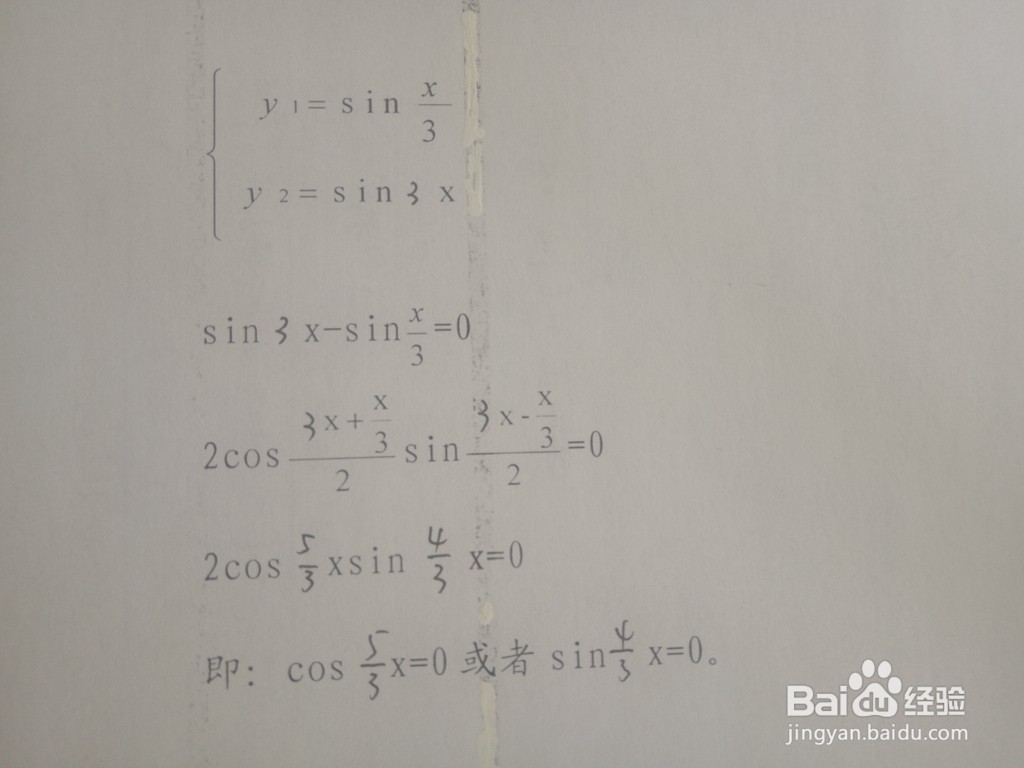 y 1= sin x/3
y 2= sin 3 x
sin 3 x-sin x/3 =0
2cos (3x+x/3)/2 sin (3x-x/3)/2 =0
2cos 5/3 xsin 4/3 x=0
即: cos 5/3 x=0 或者 sin 4/3 x=0。
Bai 经验
jingyan.baidu.com